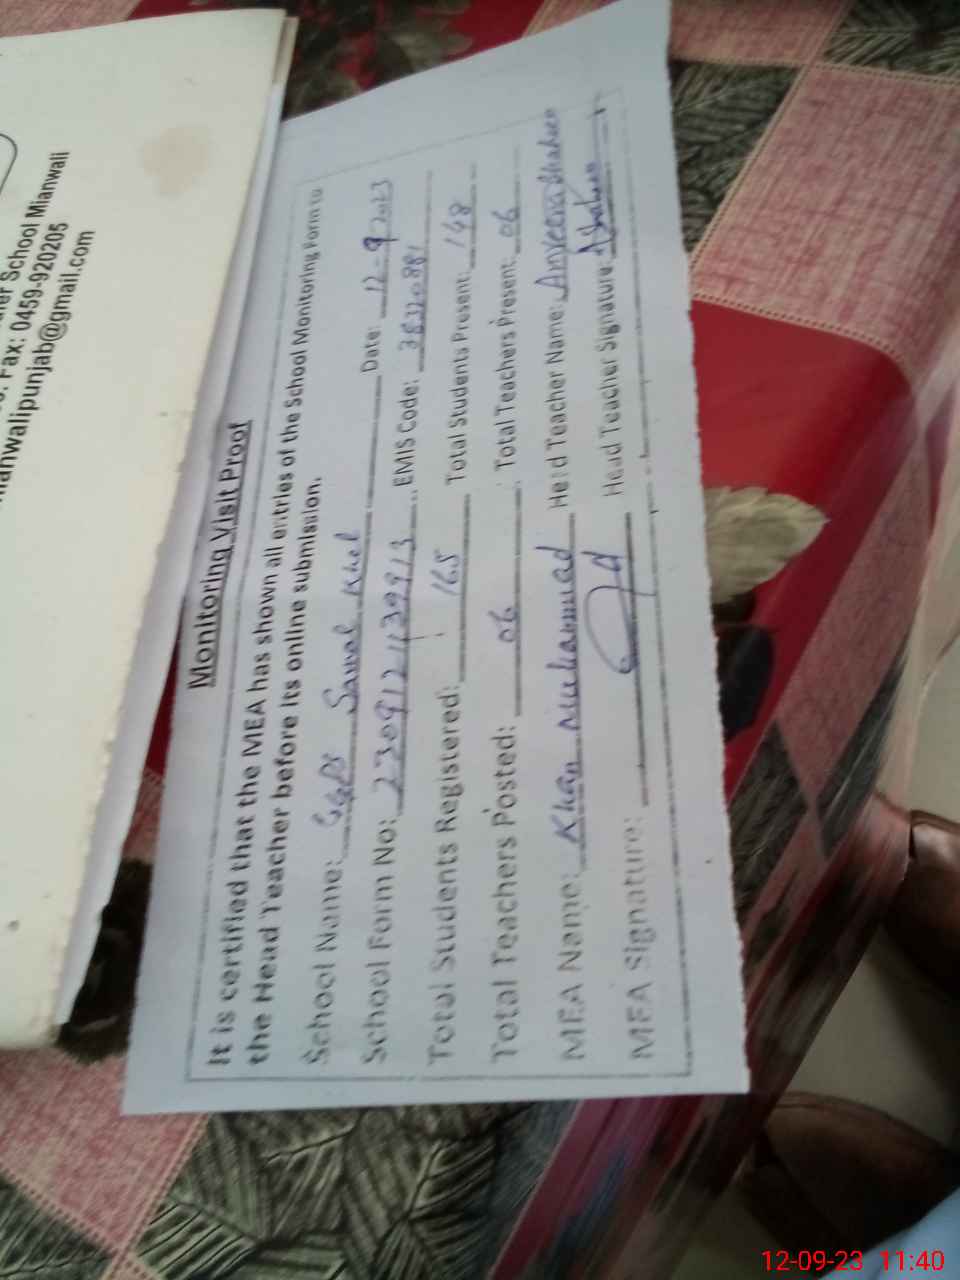 School Mianwali
Fax: 0459-920205
anwalipunjab@gmail.com
Monitoring Visit Proof
It is certified that the MEA has shown all entries of the School Monitoring Form to
the Head Teacher before its online submission.
School Name: GGPS Sawal Khel Date: 12-9-2023
School Form No: EMIS Code:
Total Students Registered: 165 Total Students Present: 148
Total Teachers Posted: 06 Total Teachers Present: 06
MEA Name: Khan Muhammad Head Teacher Name:
MEA Signature: Head Teacher Signature:
12-09-23 11:40